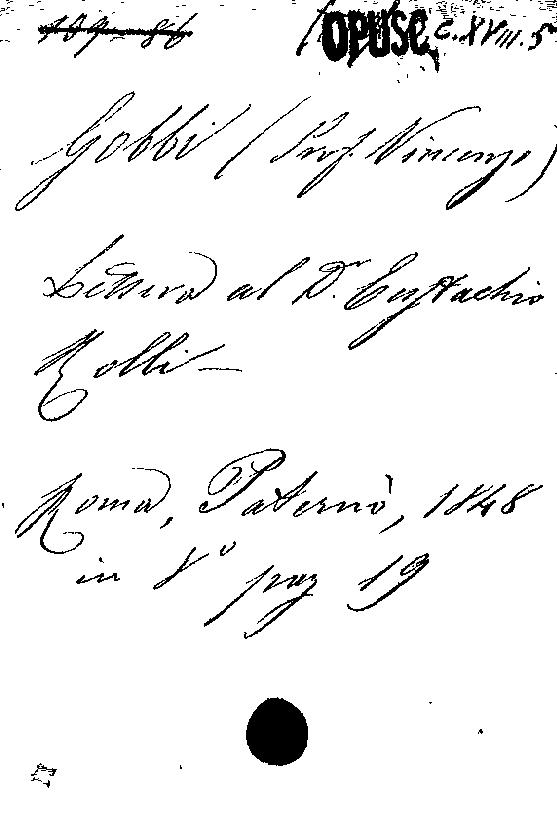 109-86 OPUSC. C.XVIII.5
Gobbi (Prof. Vincenzo)
Lettera al Dr. Eustachio
Rolli —
Roma, Paternò, 1848
in 8° pag 19